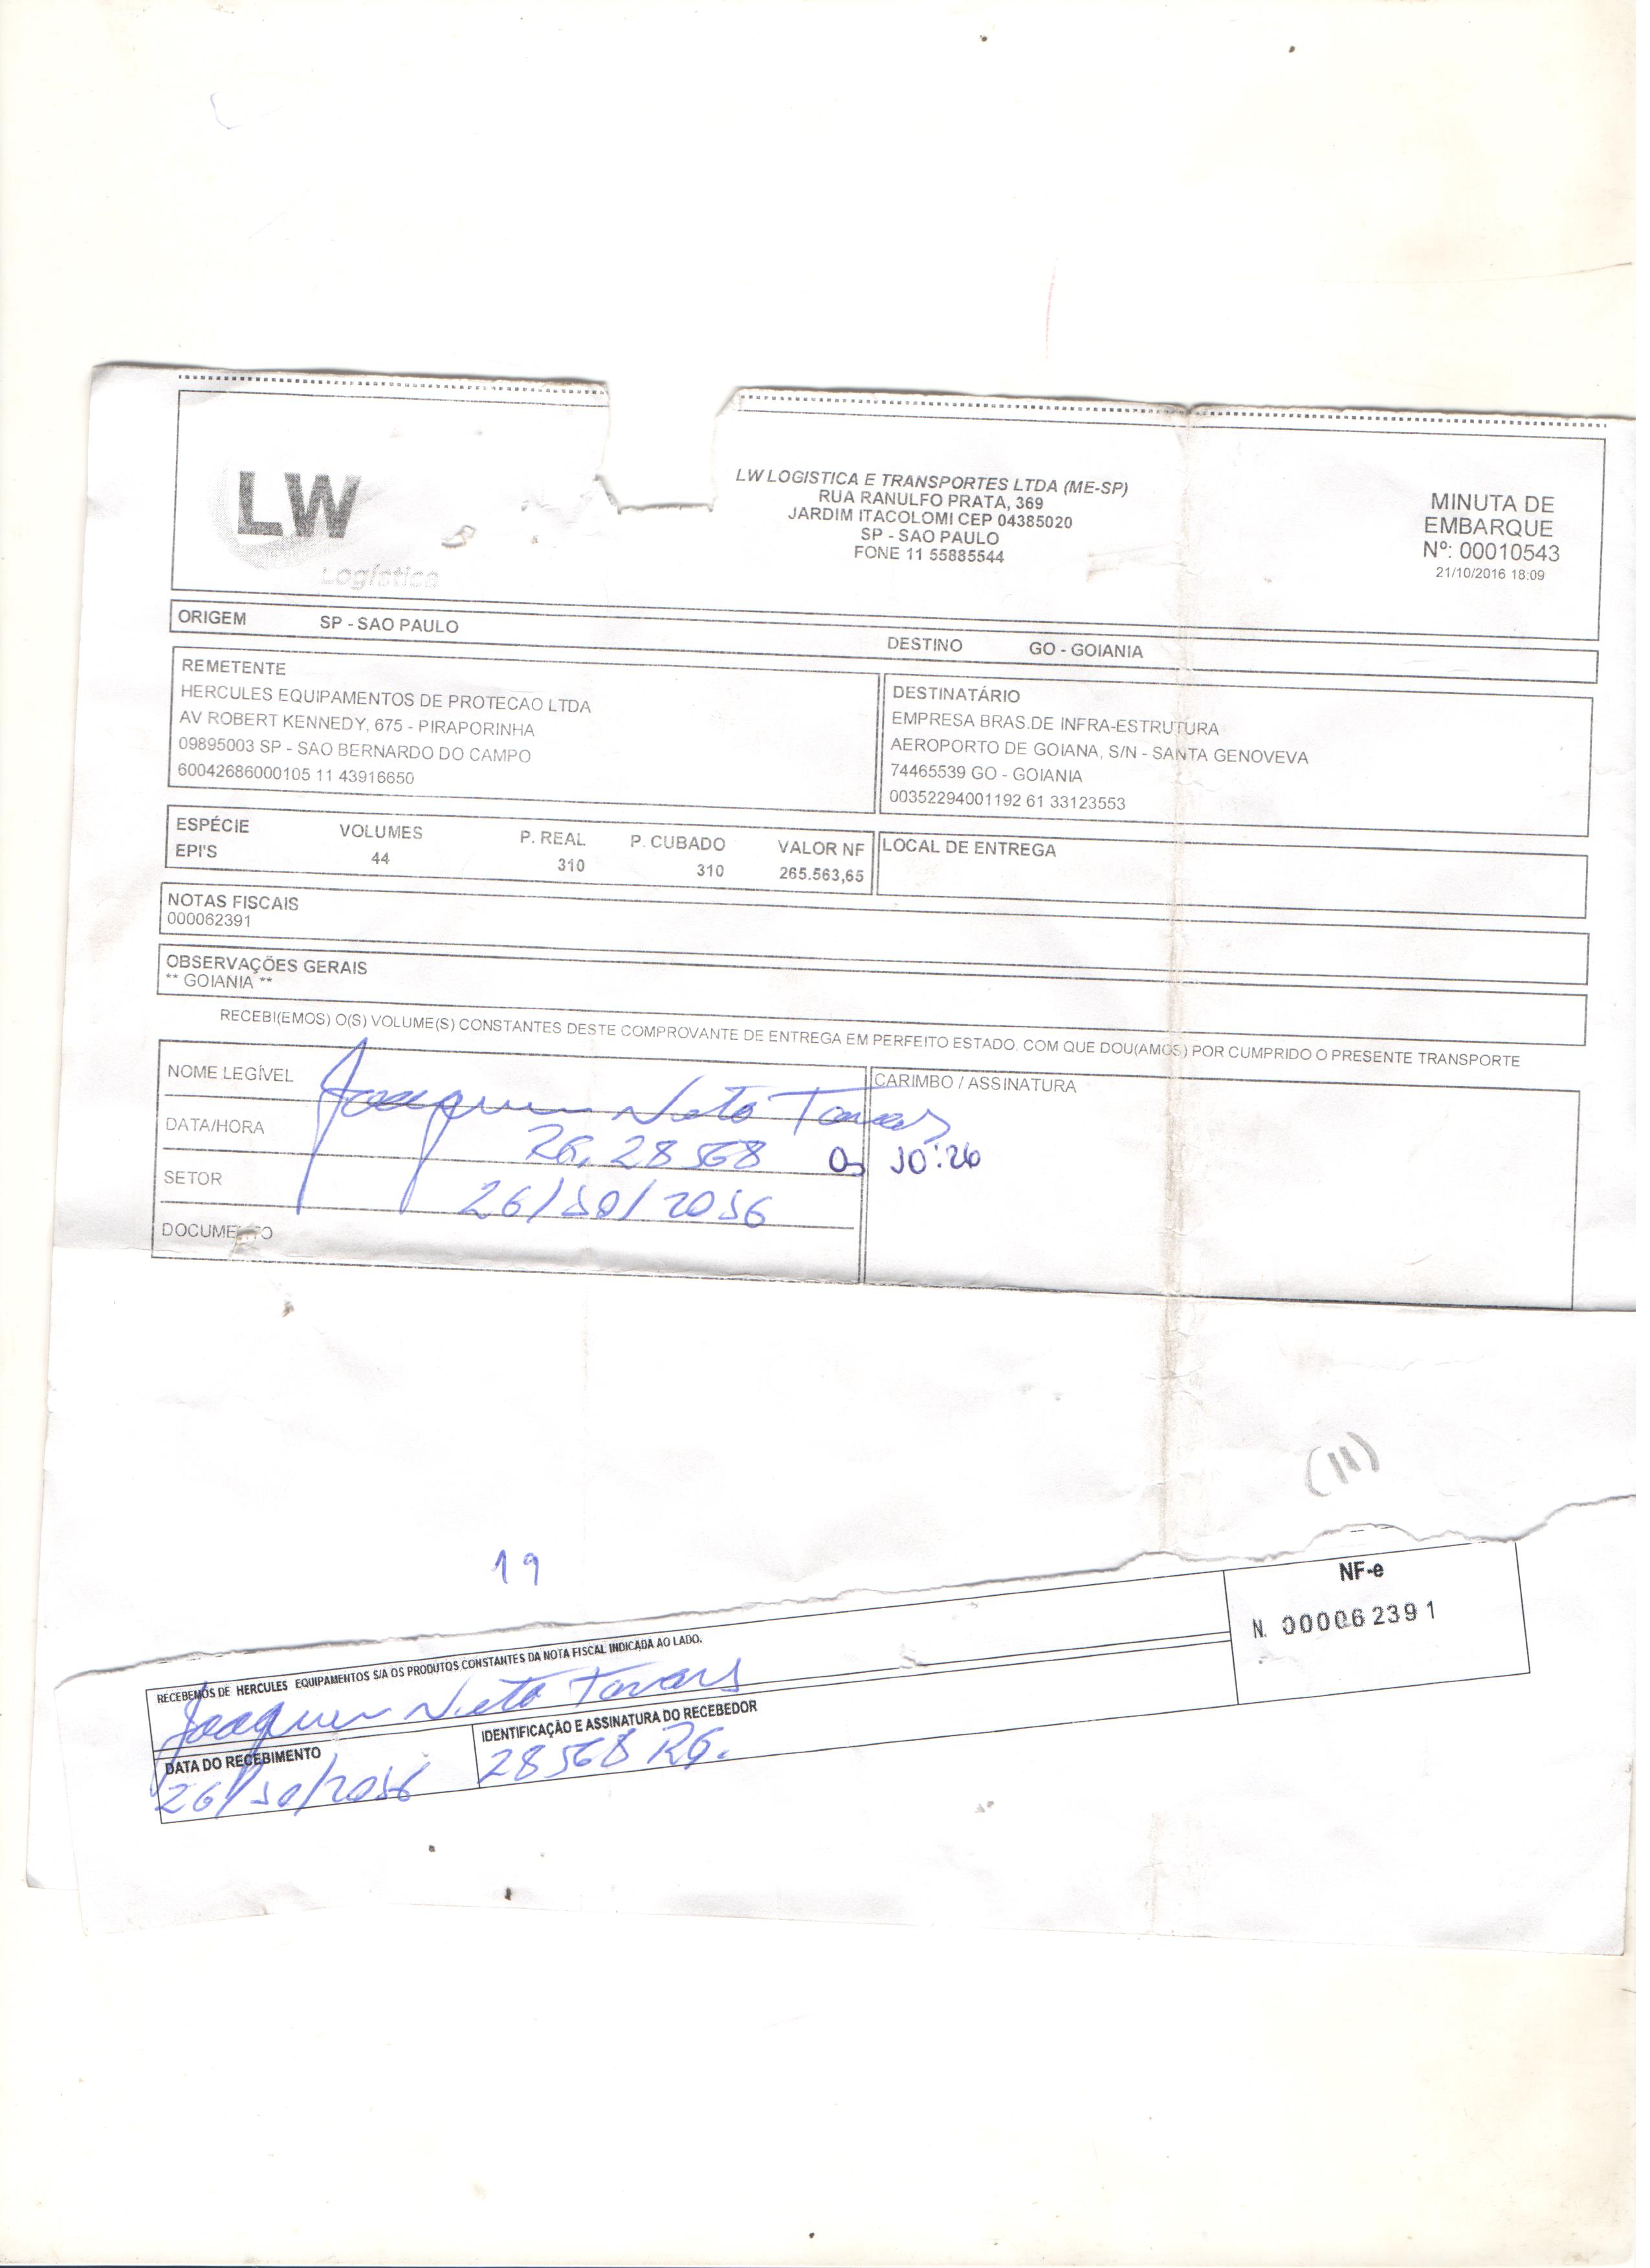 LW
Logística
LW LOGISTICA E TRANSPORTES LTDA (ME-SP)
RUA RANULFO PRATA, 369
JARDIM ITACOLOMI CEP 04385020
SP - SAO PAULO
FONE 11 55885544
MINUTA DE
EMBARQUE
Nº: 00010543
21/10/2016 18:09
ORIGEM SP - SAO PAULO
DESTINO GO - GOIANIA
REMETENTE
HERCULES EQUIPAMENTOS DE PROTECAO LTDA
AV ROBERT KENNEDY, 675 - PIRAPORINHA
09895003 SP - SAO BERNARDO DO CAMPO
60042686000105 11 43916650
DESTINATÁRIO
EMPRESA BRAS.DE INFRA-ESTRUTURA
AEROPORTO DE GOIANA, S/N - SANTA GENOVEVA
74465539 GO - GOIANIA
00352294001192 61 33123553
ESPÉCIE VOLUMES P. REAL P. CUBADO VALOR NF
EPI'S 44 310 310 265.563,65
LOCAL DE ENTREGA
NOTAS FISCAIS
000062391
OBSERVAÇÕES GERAIS
** GOIANIA **
RECEBI(EMOS) O(S) VOLUME(S) CONSTANTES DESTE COMPROVANTE DE ENTREGA EM PERFEITO ESTADO, COM QUE DOU(AMOS) POR CUMPRIDO O PRESENTE TRANSPORTE
NOME LEGÍVEL Joaquim Neto Tavares
CARIMBO / ASSINATURA
DATA/HORA RG. 28568 às 10:26
SETOR 26/10/2016
DOCUMENTO
(11)
19
NF-e
N. 000062391
RECEBEMOS DE HERCULES EQUIPAMENTOS S/A OS PRODUTOS CONSTANTES DA NOTA FISCAL INDICADA AO LADO.
Joaquim Neto Tavares
DATA DO RECEBIMENTO
26/10/2016
IDENTIFICAÇÃO E ASSINATURA DO RECEBEDOR
28568 RG.